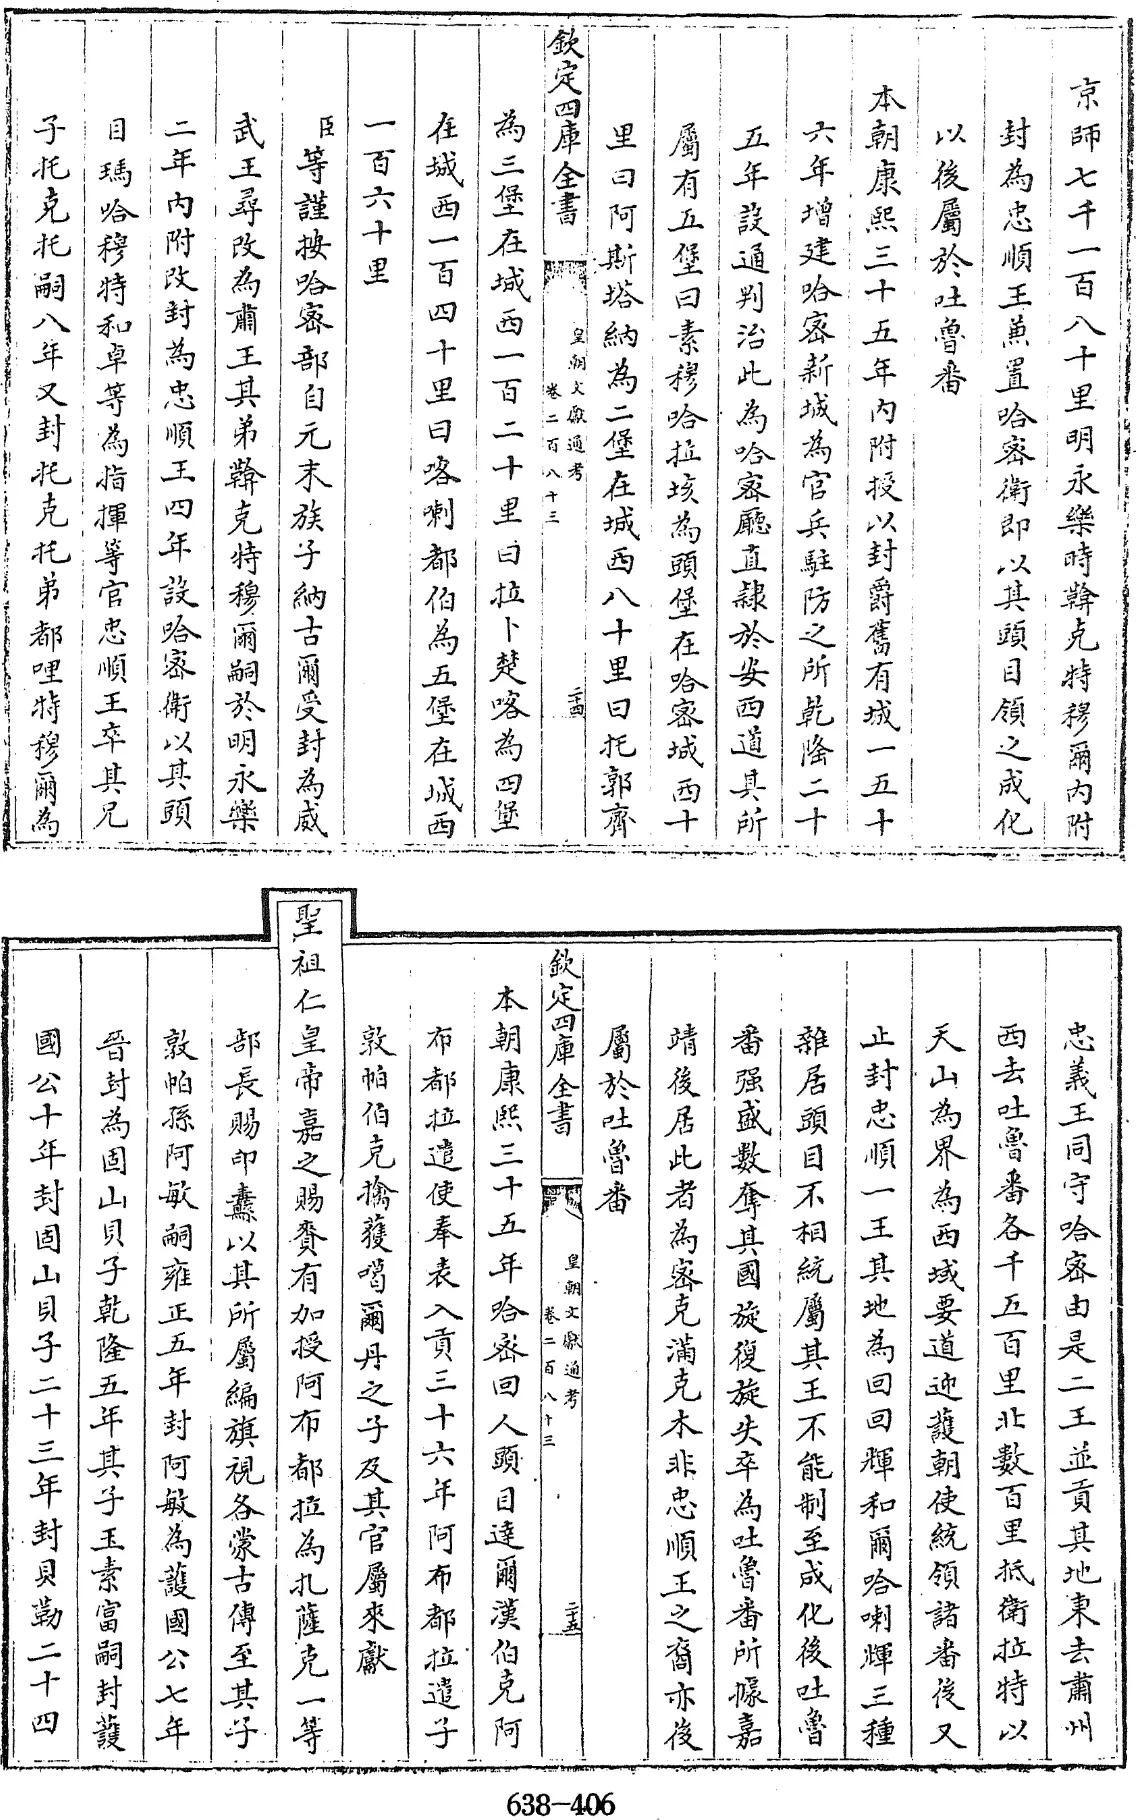 京師七千一百八十里明永樂時斡克特穆爾內附
封為忠順王兼置哈密衛即以其頭目領之成化
以後屬於吐魯番
本朝康熙三十五年內附授以封爵舊有城一五十
六年增建哈密新城為官兵駐防之所乾隆二十
五年設通判治此為哈密廳直隸於安西道其所
屬有五堡曰素穆哈拉垓為頭堡在哈密城西十
里曰阿斯塔納為二堡在城西八十里曰托郭齊
欽定四庫全書
皇朝文獻通考
卷二百八十三
二十四
為三堡在城西一百二十里曰拉卜楚喀為四堡
在城西一百四十里曰喀喇都伯為五堡在城西
一百六十里
臣等謹按哈密部自元末族子納古爾受封為威
武王尋改為肅王其弟斡克特穆爾嗣於明永樂
二年內附改封為忠順王四年設哈密衛以其頭
目瑪哈穆特和卓等為指揮等官忠順王卒其兄
子托克托嗣八年又封托克托弟都哩特穆爾為
忠義王同守哈密由是二王並貢其地東去肅州
西去吐魯番各千五百里北數百里抵衛拉特以
天山為界為西域要道迎護朝使統領諸番後又
止封忠順一王其地為回回輝和爾哈喇輝三種
雜居頭目不相統屬其王不能制至成化後吐魯
番强盛數奪其國旋復旋失卒為吐魯番所據嘉
靖後居此者為密克滿克木非忠順王之裔亦後
屬於吐魯番
欽定四庫全書
皇朝文獻通考
卷二百八十三
二十五
本朝康熙三十五年哈密回人頭目達爾漢伯克阿
布都拉遣使奉表入貢三十六年阿布都拉遣子
敦帕伯克擒獲噶爾丹之子及其官屬來獻
聖祖仁皇帝嘉之賜賚有加授阿布都拉為扎薩克一等
部長賜印纛以其所屬編旗視各蒙古傳至其子
敦帕孫阿敏嗣雍正五年封阿敏為護國公七年
晉封為固山貝子乾隆五年其子玉素富嗣封護
國公十年封固山貝子二十三年封貝勒二十四
638-406